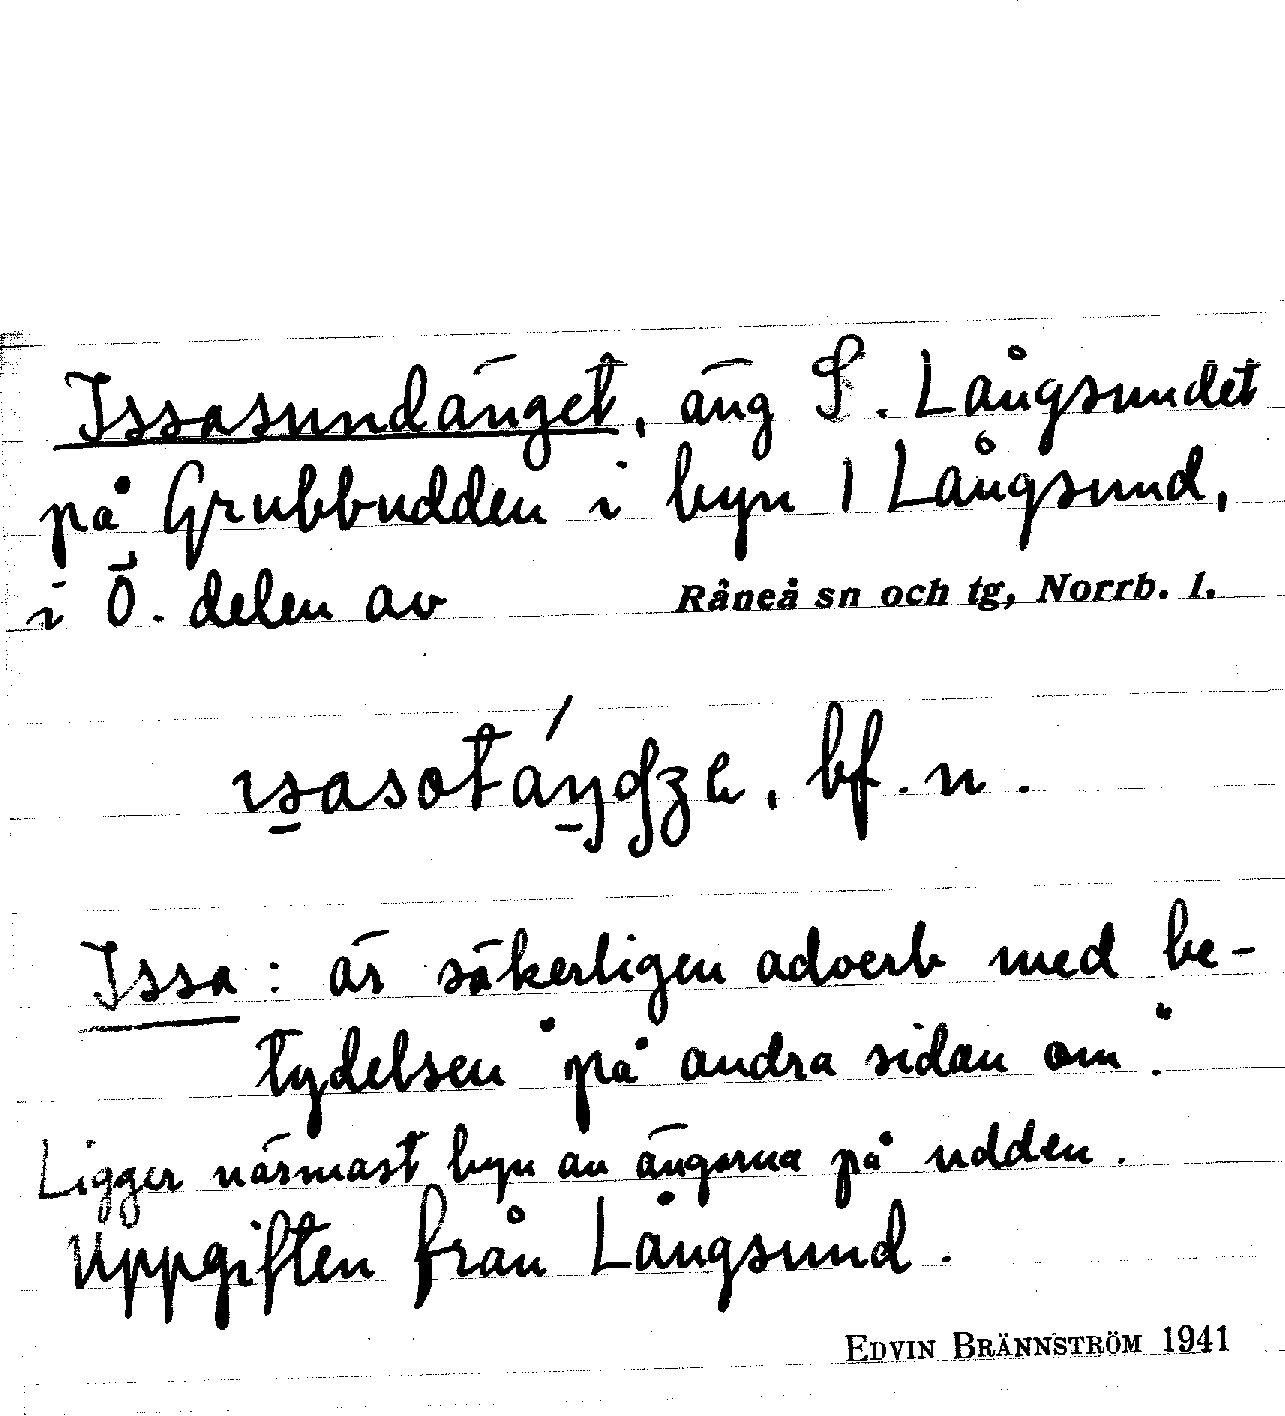 Issasundänget, äng S. Långsundet
på Grubbudden i byn 1 Långsund,
i Ö. delen av Råneå sn och tg, Norrb. l.
bf. n.
Issa: är säkerligen adverb med be-
tydelsen "på andra sidan om".
Ligger närmast byn av ängarna på udden.
Uppgiften från Långsund.
EDVIN BRÄNNSTRÖM 1941